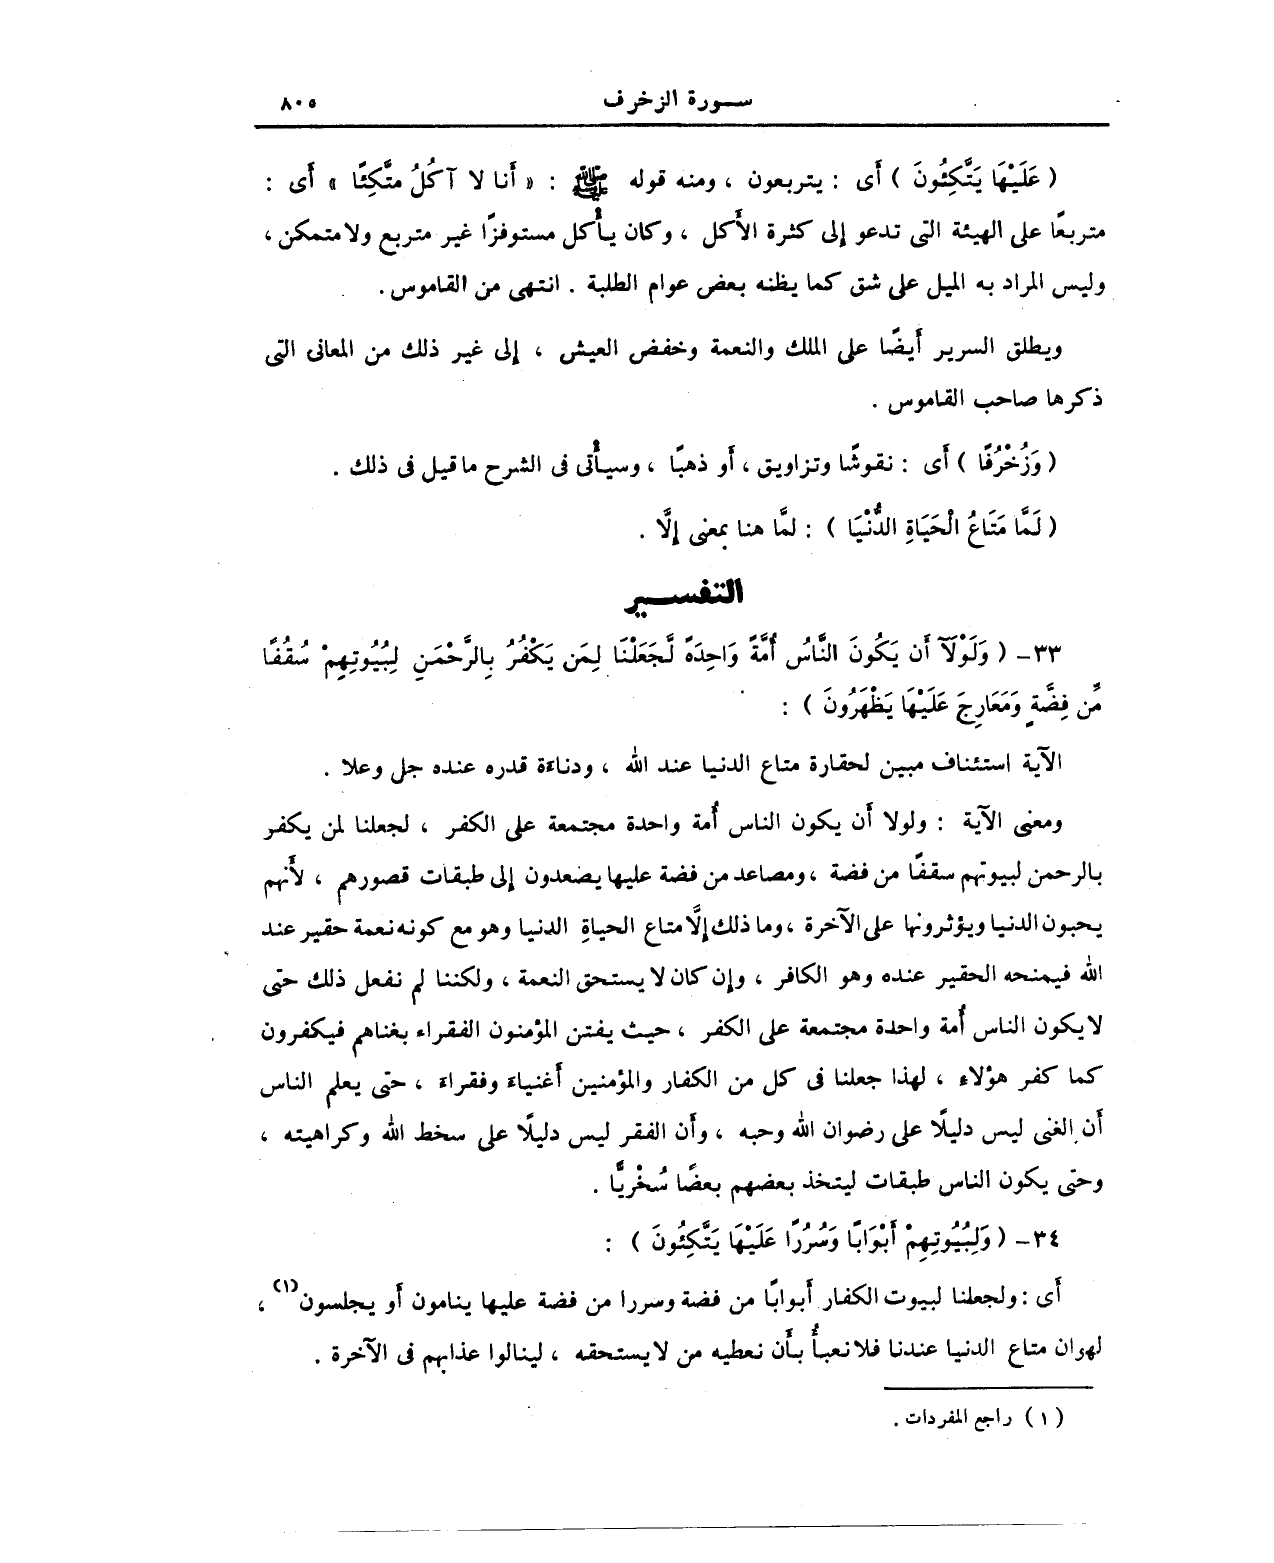 سورة الزخرف ٨٠٥
( عَلَيْهَا يَتَّكِئُونَ ) أَى : يتربعون ، ومنه قوله ﷺ : « أَنا لا آكُلُ متَّكِئًا » أَى :
متربعًا على الهيئة التى تدعو إلى كثرة الأَكل ، وكان يأْكل مستوفزًا غير متربع ولا متمكن ،
وليس المراد به الميل على شق كما يظنه بعض عوام الطلبة . انتهى من القاموس .
ويطلق السرير أَيضًا على الملك والنعمة وخفض العيش ، إلى غير ذلك من المعانى التى
ذكرها صاحب القاموس .
( وَزُخْرُفًا ) أَى : نقوشًا وتزاويق ، أَو ذهبًا ، وسيأْتى فى الشرح ما قيل فى ذلك .
( لَمَّا مَتَاعُ الْحَيَاةِ الدُّنْيَا ) : لمَّا هنا بمعنى إلَّا .
التفسير
٣٣- ( وَلَوْلَآ أَن يَكُونَ النَّاسُ أُمَّةً وَاحِدَةً لَّجَعَلْنَا لِمَن يَكْفُرُ بِالرَّحْمَنِ لِبُيُوتِهِمْ سُقُفًا
مِّن فِضَّةٍ وَمَعَارِجَ عَلَيْهَا يَظْهَرُونَ ) :
الآية استئناف مبين لحقارة متاع الدنيا عند الله ، ودناءة قدره عنده جل وعلا .
ومعنى الآية : ولولا أَن يكون الناس أُمة واحدة مجتمعة على الكفر ، لجعلنا لمن يكفر
بالرحمن لبيوتهم سقفًا من فضة ، ومصاعد من فضة عليها يصعدون إلى طبقات قصورهم ، لأَنهم
يحبون الدنيا ويؤثرونها على الآخرة ، وما ذلك إلَّا متاع الحياةِ الدنيا وهو مع كونه نعمة حقير عند
الله فيمنحه الحقير عنده وهو الكافر ، وإن كان لا يستحق النعمة ، ولكننا لم نفعل ذلك حتى
لا يكون الناس أُمة واحدة مجتمعة على الكفر ، حيث يفتن المؤمنون الفقراء بغناهم فيكفرون
كما كفر هؤلاء ، لهذا جعلنا فى كل من الكفار والمؤمنين أَغنياءَ وفقراءَ ، حتى يعلم الناس
أَن الغنى ليس دليلًا على رضوان الله وحبه ، وأَن الفقر ليس دليلًا على سخط الله وكراهيته ،
وحتى يكون الناس طبقات ليتخذ بعضهم بعضًا سُخْرِيًّا .
٣٤- ( وَلِبُيُوتِهِمْ أَبْوَابًا وَسُرُرًا عَلَيْهَا يَتَّكِئُونَ ) :
أَى : ولجعلنا لبيوت الكفار أَبوابًا من فضة وسررا من فضة عليها ينامون أَو يجلسون (١) ،
لهوان متاع الدنيا عندنا فلا نعبأُ بأَن نعطيه من لا يستحقه ، لينالوا عذابهم فى الآخرة .
( ١ ) راجع المفردات .